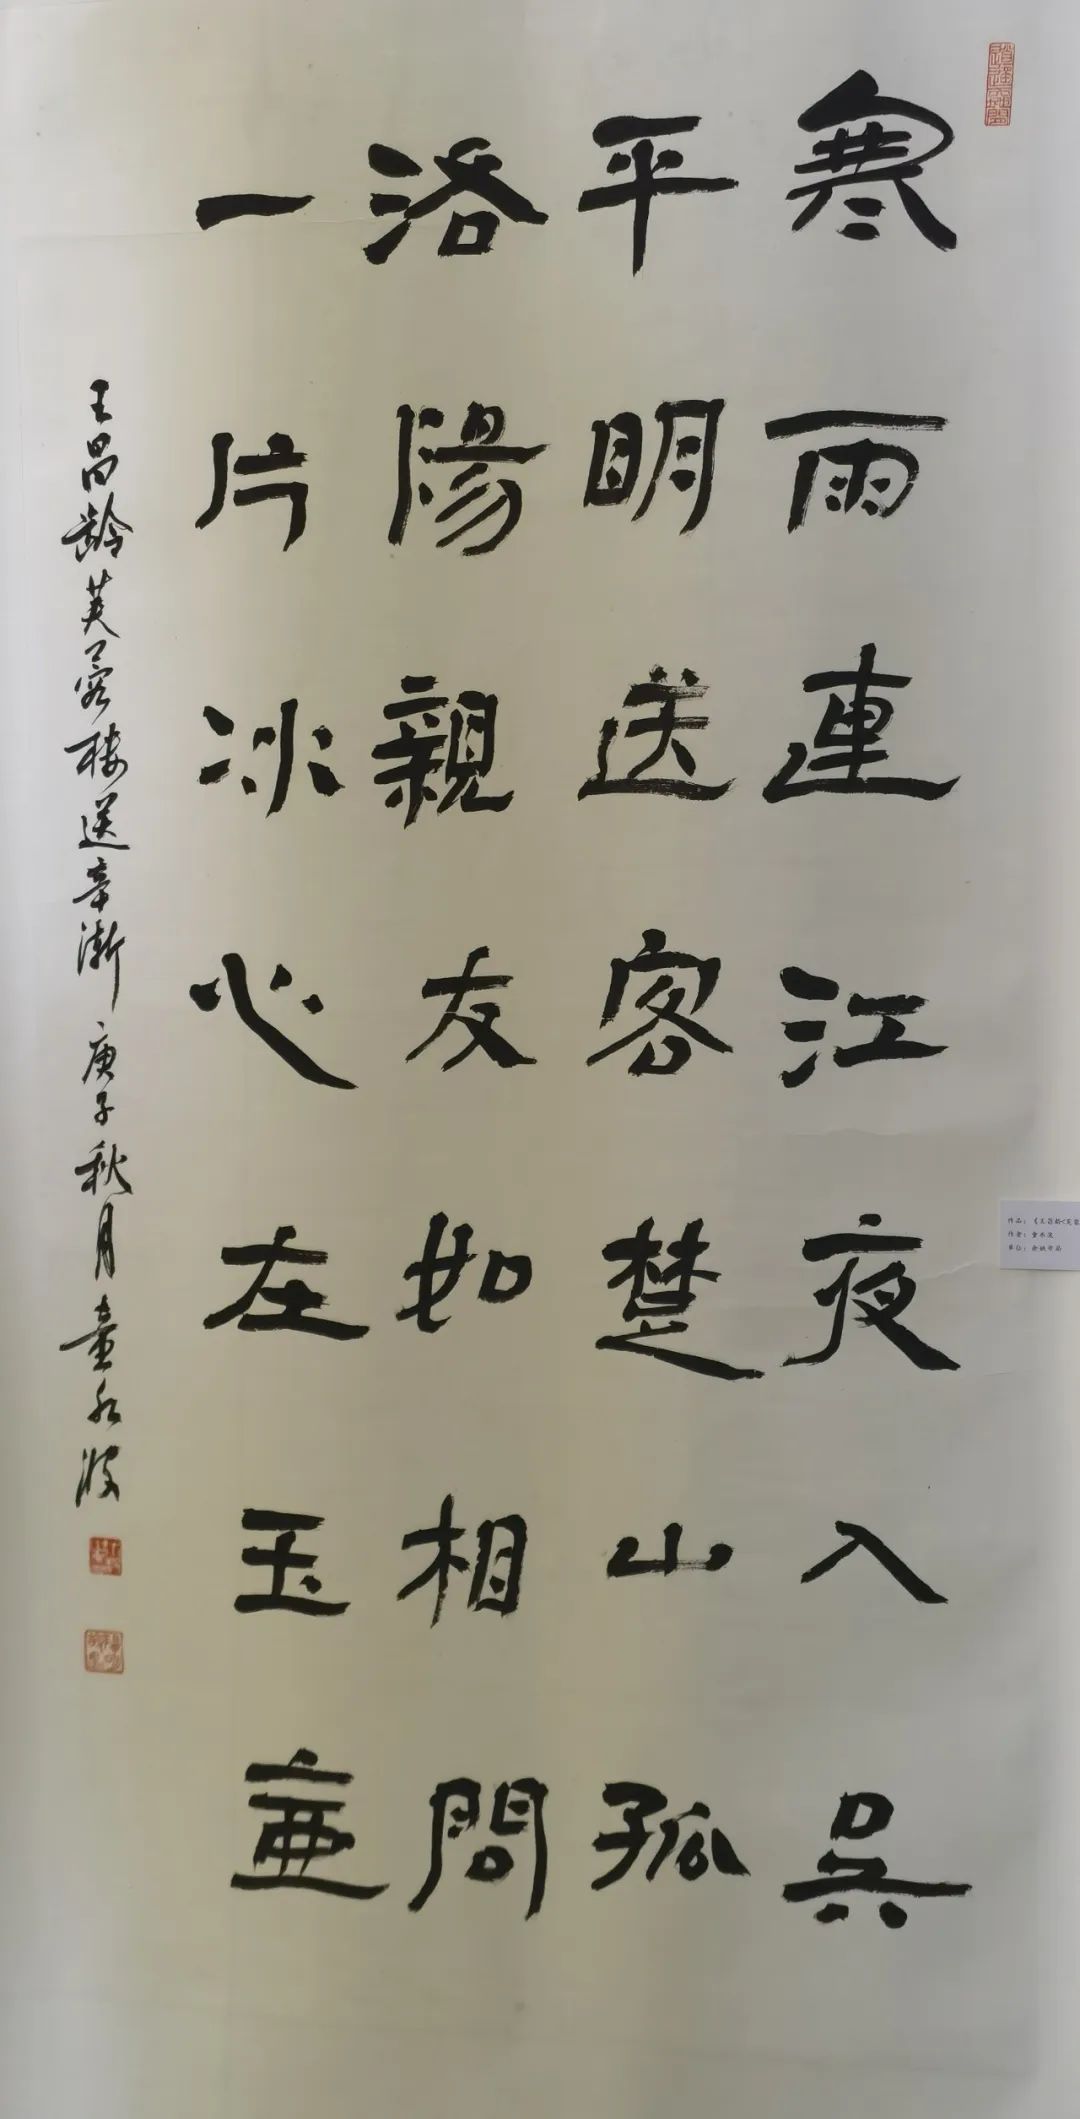 寒雨連江夜入吴
平明送客楚山孤
洛陽親友如相問
一片冰心在玉壷
王昌齡芙蓉樓送辛漸 庚子秋月童永波
作品：《王昌龄<芙蓉
作者：童永波
单位：余姚市局